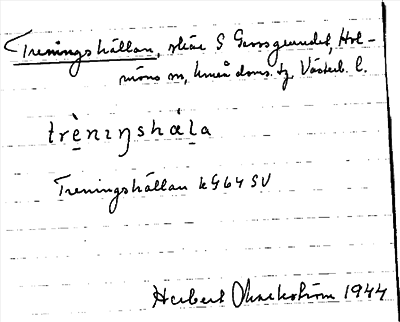 Treningshällan, skär S Grossgrundet, Hol-
möns sn, Umeå doms. tg, Västerb. l.
trènıŋshä̀la
Treningshällan k G64 SV
Herbert Ohrekström 1944